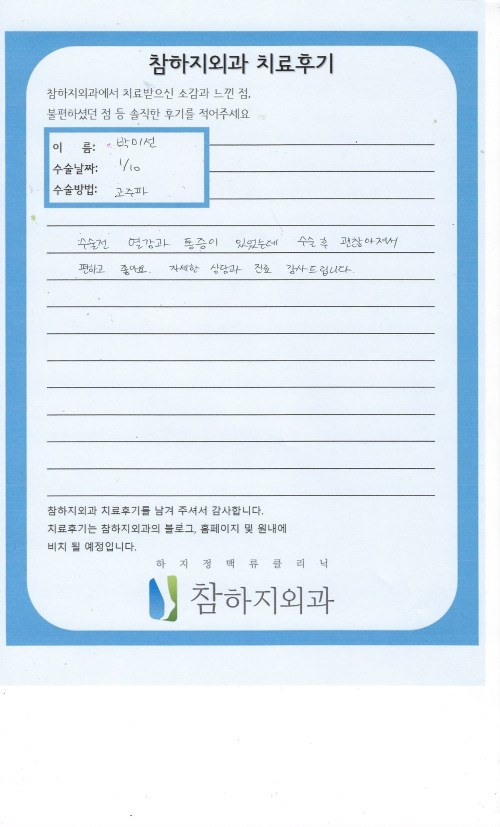 참하지외과 치료후기
참하지외과에서 치료받으신 소감과 느낀 점,
불편하셨던 점 등 솔직한 후기를 적어주세요
이 름: 박미선
수술날짜: 1/10
수술방법: 고주파
수술전 열감과 통증이 있었는데 수술 후 괜찮아져서
편하고 좋아요. 자세한 상담과 진료 감사드립니다.
참하지외과 치료후기를 남겨 주셔서 감사합니다.
치료후기는 참하지외과의 블로그, 홈페이지 및 원내에
비치 될 예정입니다.
하지정맥류클리닉
참하지외과